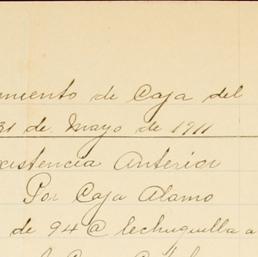 miento de Caja del
31 de Mayo de 1911
xistencia Anterior
Por Caja Alamo
de 94 @ lechuguilla a